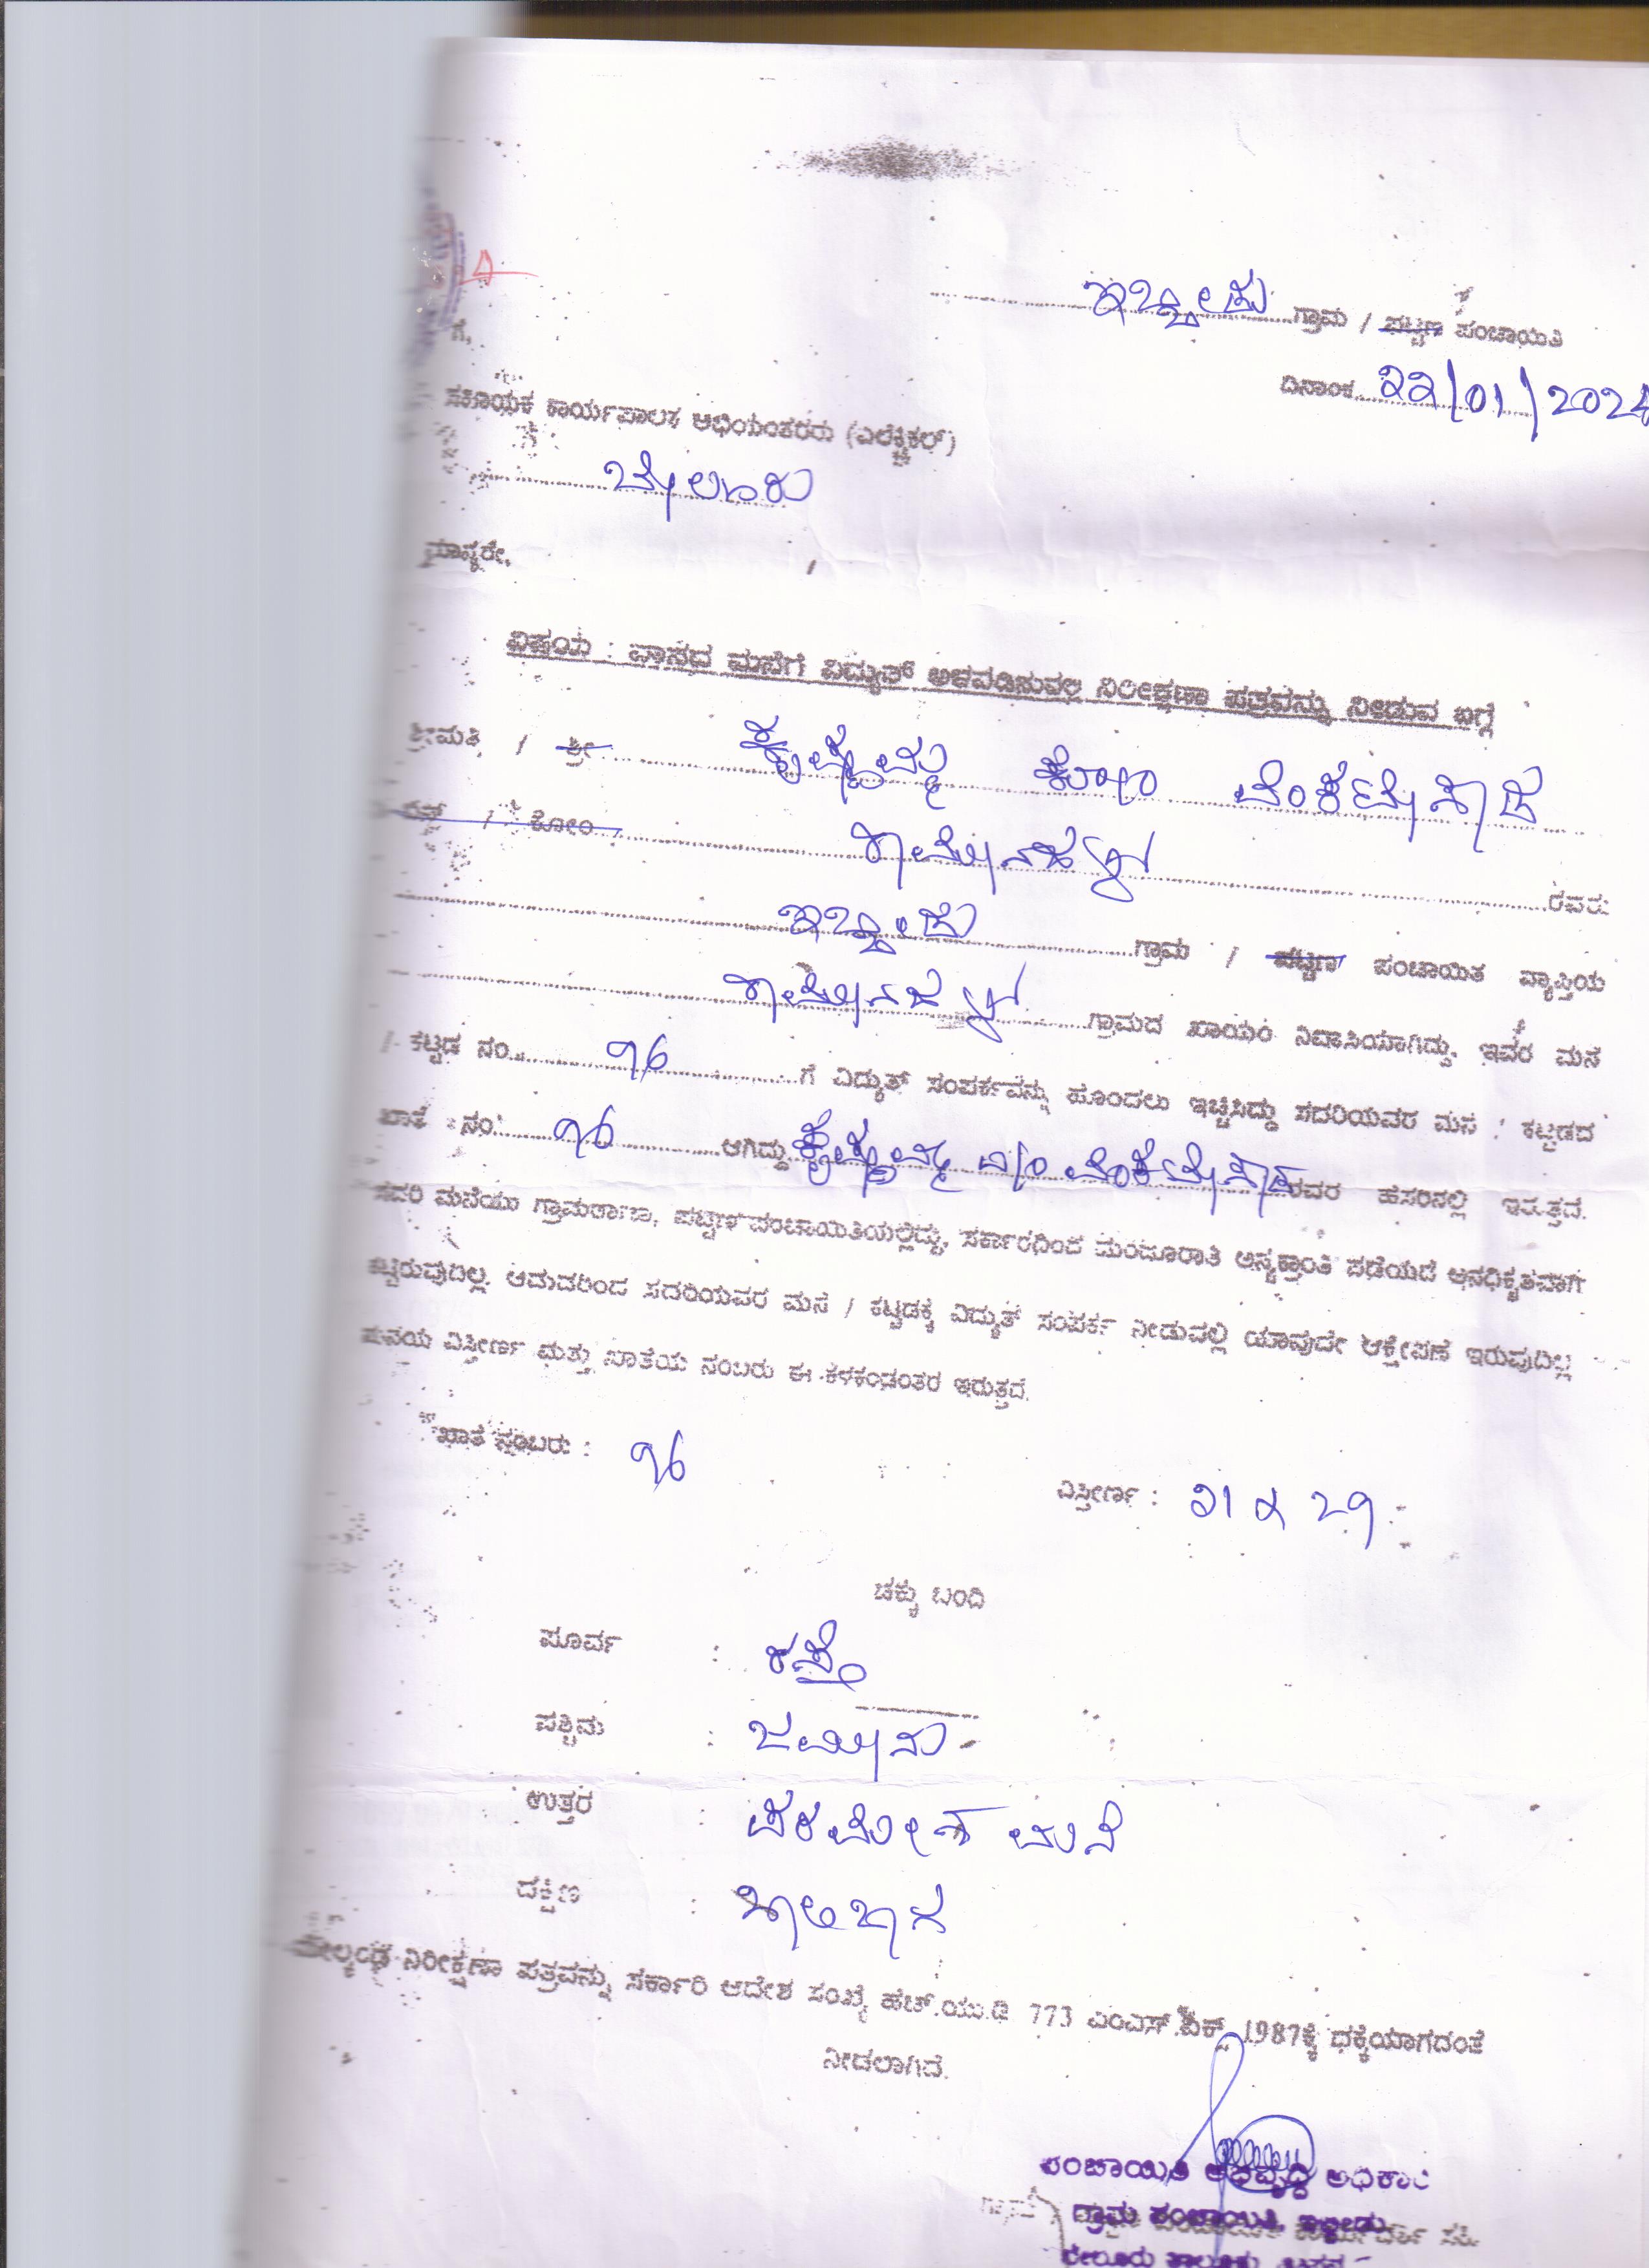 ಇಬ್ಬೀಡು ಗ್ರಾಮ / ಪಟ್ಟಣ ಪಂಚಾಯಿತಿ
ಗೆ,
ದಿನಾಂಕ 22/01/2024
ಸಹಾಯಕ ಕಾರ್ಯಪಾಲಕ ಅಭಿಯಂತರರು (ಎಲೆಕ್ಟ್ರಿಕಲ್)
ಬೇಲೂರು
ಮಾನ್ಯರೇ,
ವಿಷಯ : ವಾಸದ ಮನೆಗೆ ವಿದ್ಯುತ್ ಅಳವಡಿಸುವಲ್ಲಿ ನಿರೀಕ್ಷಣಾ ಪತ್ರವನ್ನು ನೀಡುವ ಬಗ್ಗೆ
ಶ್ರೀಮತಿ / ಶ್ರೀ ಕೃಷ್ಣಮ್ಮ ಕೋಂ ವೆಂಕಟೇಗೌಡ
ಬಿನ್ / ಕೋಂ ರವರು
ಇಬ್ಬೀಡು ಗ್ರಾಮ / ಪಟ್ಟಣ ಪಂಚಾಯಿತ ವ್ಯಾಪ್ತಿಯ
ಗ್ರಾಮದ ಖಾಯಂ ನಿವಾಸಿಯಾಗಿದ್ದು, ಇವರ ಮನೆ
/ ಕಟ್ಟಡ ನಂ. 96 ಗೆ ವಿದ್ಯುತ್ ಸಂಪರ್ಕವನ್ನು ಹೊಂದಲು ಇಚ್ಚಿಸಿದ್ದು ಸದರಿಯವರ ಮನೆ / ಕಟ್ಟಡದ
ಖಾತೆ ನಂ. 96 ಆಗಿದ್ದು ಕೃಷ್ಣಮ್ಮ ವೆಂಕಟೇಗೌಡ ರವರ ಹೆಸರಿನಲ್ಲಿ ಇರುತ್ತದೆ.
ಸದರಿ ಮನೆಯೂ ಗ್ರಾಮಠಾಣಾ, ಪಟ್ಟಣ ಪಂಚಾಯಿತಿಯಲ್ಲಿದ್ದು, ಸರ್ಕಾರದಿಂದ ಮಂಜೂರಾತಿ ಅನ್ಯಕ್ರಾಂತಿ ಪಡೆಯದೆ ಅನಧಿಕೃತವಾಗಿ
ಕಟ್ಟಿರುವುದಿಲ್ಲ. ಆದುದರಿಂದ ಸದರಿಯವರ ಮನೆ / ಕಟ್ಟಡಕ್ಕೆ ವಿದ್ಯುತ್ ಸಂಪರ್ಕ ನೀಡುವಲ್ಲಿ ಯಾವುದೇ ಆಕ್ಷೇಪಣೆ ಇರುವುದಿಲ್ಲ
ಮನೆಯ ವಿಸ್ತೀರ್ಣ ಮತ್ತು ಖಾತೆಯ ನಂಬರು ಈ ಕೆಳಕಂಡಂತರ ಇರುತ್ತದೆ.
ಖಾತೆ ನಂಬರು : 96
ವಿಸ್ತೀರ್ಣ : 31 x 29
ಚಕ್ಕು ಬಂದಿ
ಪೂರ್ವ : ರಸ್ತೆ
ಪಶ್ಚಿಮ : ಜಮೀನು
ಉತ್ತರ : ಪರಮೇಶ ಮನೆ
ದಕ್ಷಿಣ : ಖಾಲಿಜಾಗ
ಮೇಲ್ಕಂಡ ನಿರೀಕ್ಷಣಾ ಪತ್ರವನ್ನು ಸರ್ಕಾರಿ ಆದೇಶ ಸಂಖ್ಯೆ ಹೆಚ್.ಯು.ಡಿ 773 ಎಂಎನ್.ಎಕ್ಸ್ 1987ಕ್ಕೆ ಧಕ್ಕೆಯಾಗದಂತೆ
ನೀಡಲಾಗಿದೆ.
ಪಂಚಾಯಿತಿ ಅಭಿವೃದ್ಧಿ ಅಧಿಕಾರಿ
ಗ್ರಾಮ ಪಂಚಾಯಿತಿ, ಇಬ್ಬೀಡು
ಬೇಲೂರು ತಾಲ್ಲೂಕು